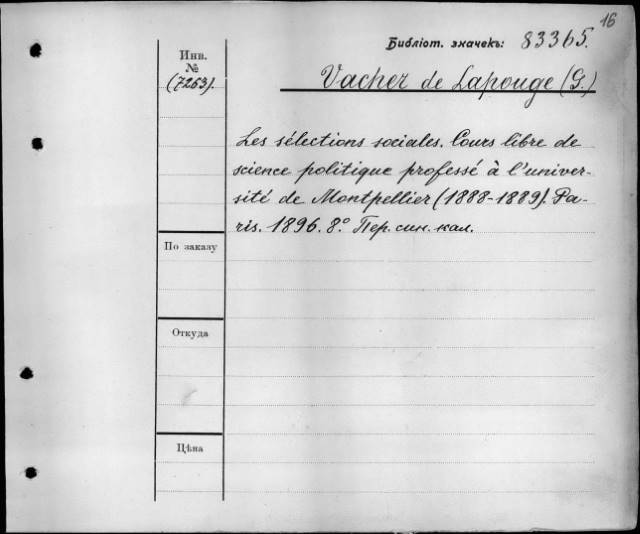 16
Библіот. значекъ: 83365.
Инв.
№
(7253).
Vacher de Lapouge (G.)
Les sélections sociales. Cours libre de
science politique professé à l'univer-
sité de Montpellier (1888-1889). Pa-
ris. 1896. 8.º Пер. син. кал.
По заказу
Откуда
Цѣна